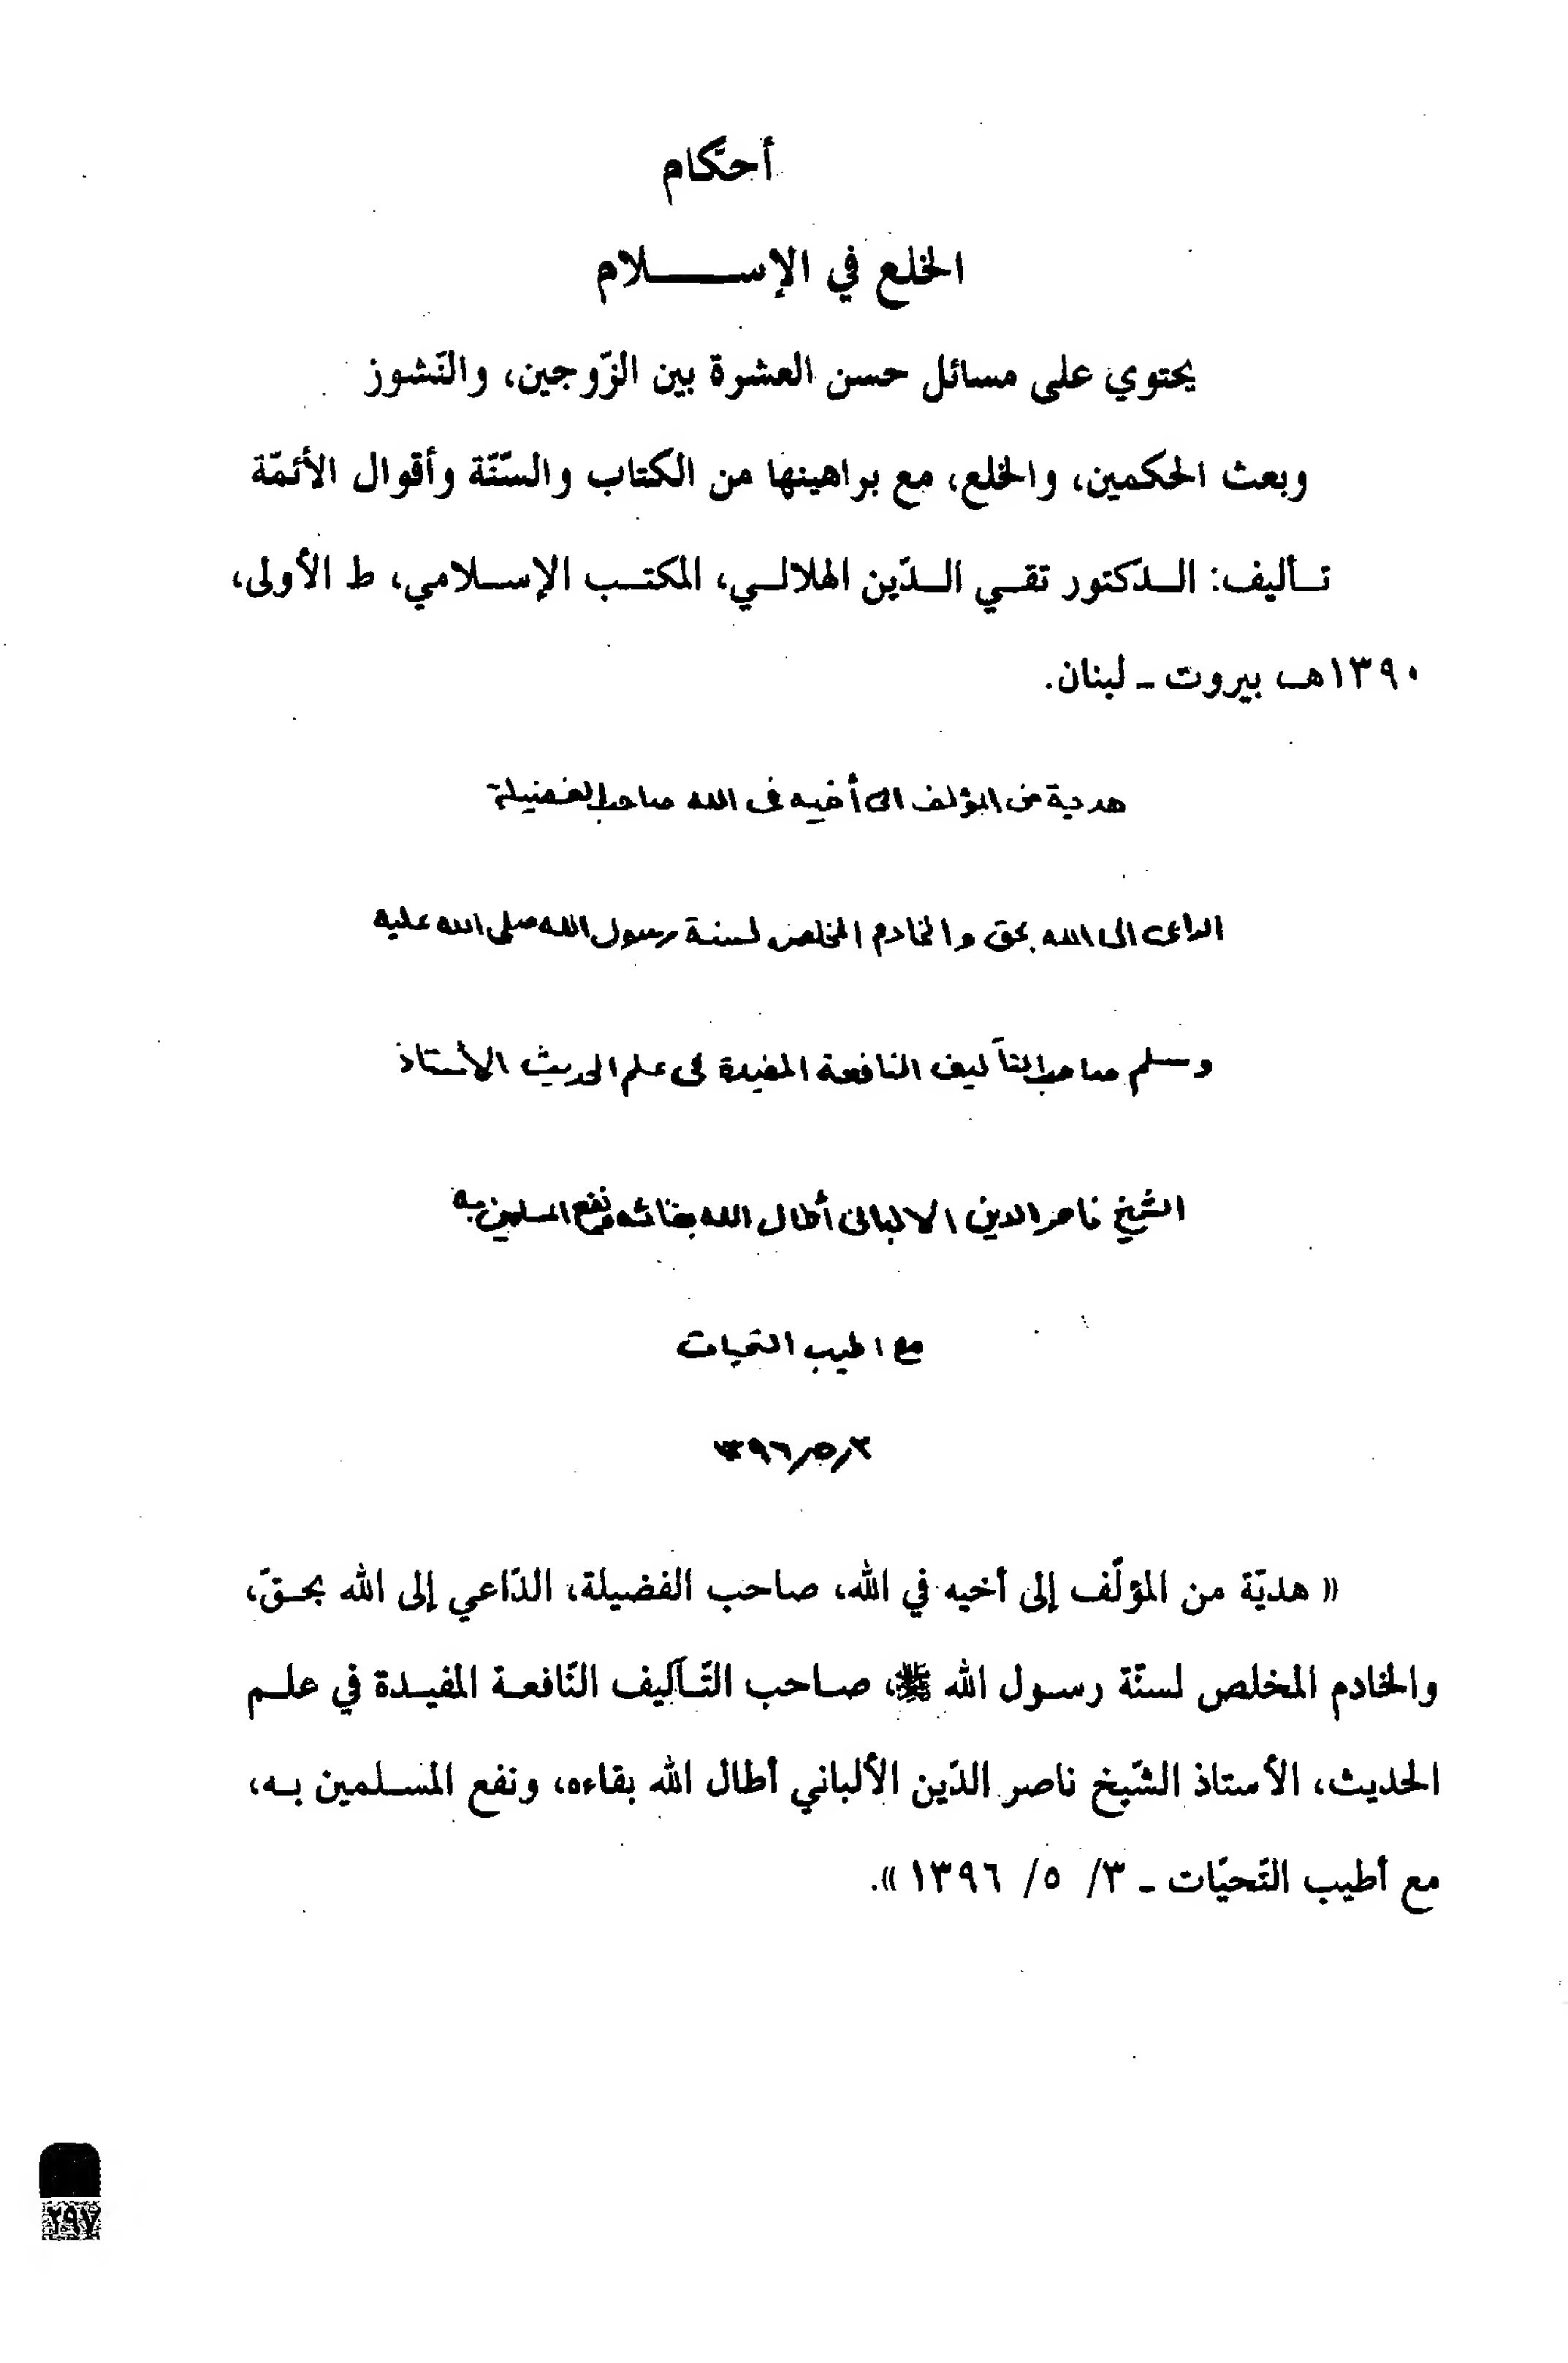 أحكام
الخلع في الإســـــلام
يحتوي على مسائل حسن العشرة بين الزّوجين، والنّشوز
وبعث الحكمين، والخلع، مع براهينها من الكتاب والسّنّة وأقوال الأئمّة
تــأليف: الــدّكتور تقــي الــدّين الهلالــي، المكتــب الإســلامي، ط الأولى،
١٣٩٠هـ بيروت ـ لبنان.
هدية من المؤلف الى أخيه فى الله صاحب الفضيلة
الداعى الى الله بحق والخادم المخلص لسنة رسول الله صلى الله عليه
وسلم صاحب التآليف النافعة المفيدة فى علم الحديث الأستاذ
الشيخ ناصر الدين الالبانى أطال الله بقائه ونفع المسلمين به
مع اطيب التحيات
٣/٥/١٣٩٦
« هديّة من المؤلّف إلى أخيه في الله، صاحب الفضيلة، الدّاعي إلى الله بحـقّ،
والخادم المخلص لسنّة رسـول الله ﷺ، صـاحب التّـآليف النّافعـة المفيـدة في علـم
الحديث، الأستاذ الشّيخ ناصر الدّين الألباني أطال الله بقاءه، ونفع المسـلمين بـه،
مع أطيب التّحيّات ـ ٣/ ٥/ ١٣٩٦ ».
٢٩٧